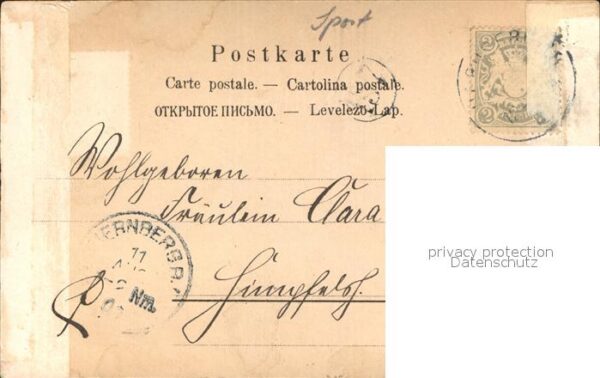 Sport
Postkarte
Carte postale. — Cartolina postale.
ОТКРЫТОЕ ПИСЬМО. — Levelező-Lap.
2 2
Wohlgeboren
Fräulein Clara
privacy protection
Datenschutz
ERNBERG
11
Nm.